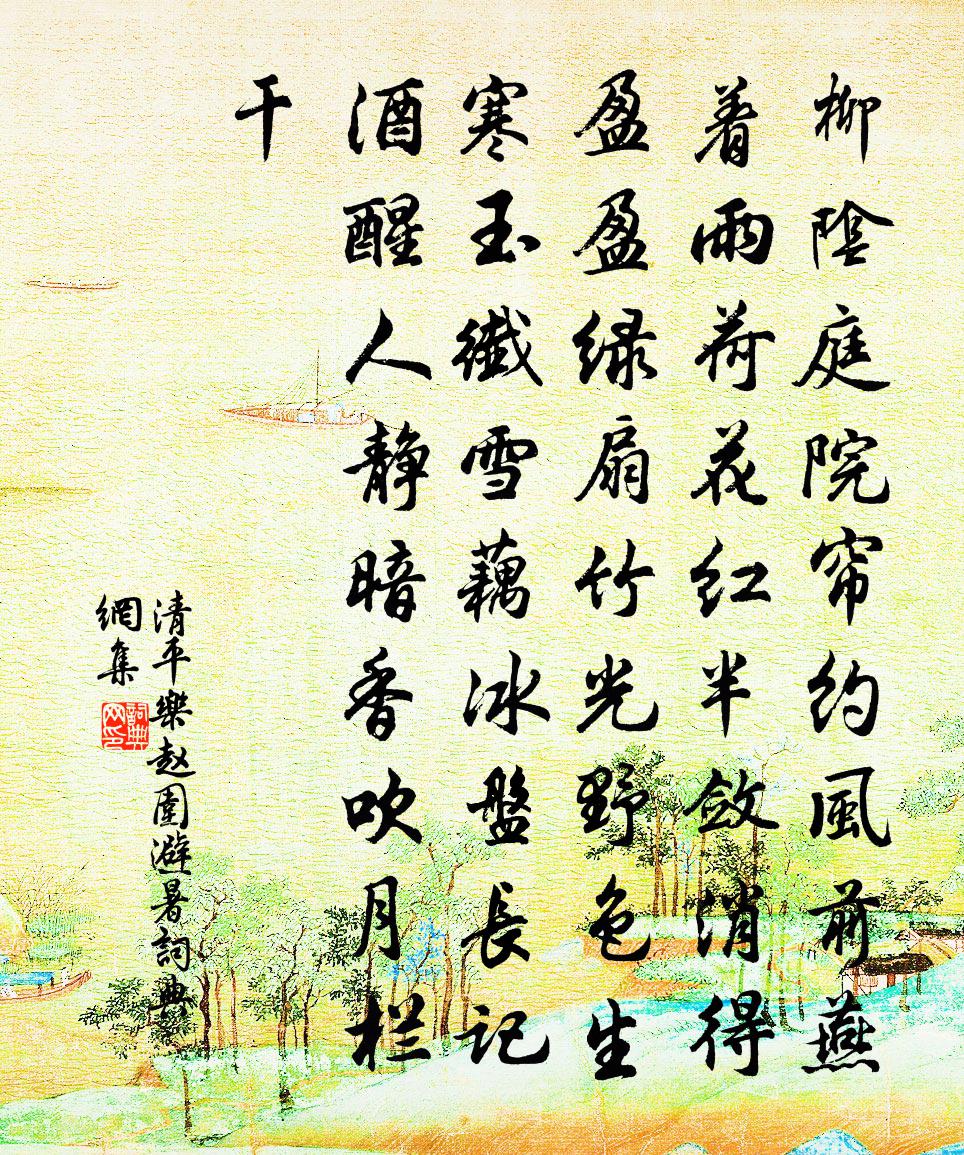 柳陰庭院帘約風前燕
着雨荷花红半斂消得
盈盈绿扇竹光野色生
寒玉纖雪藕冰盤長記
酒醒人静暗香吹月栏
干
清平樂赵園避暑詞典
網集
詞典网印